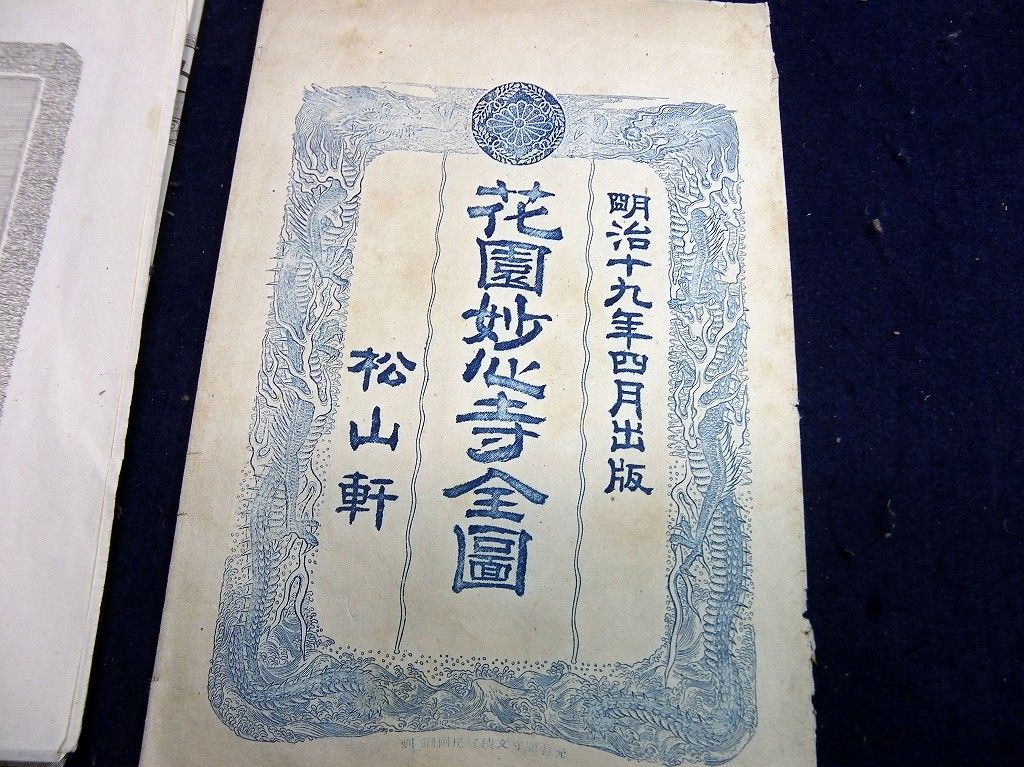 明治十九年四月出版
花園妙心寺全圖
松山軒